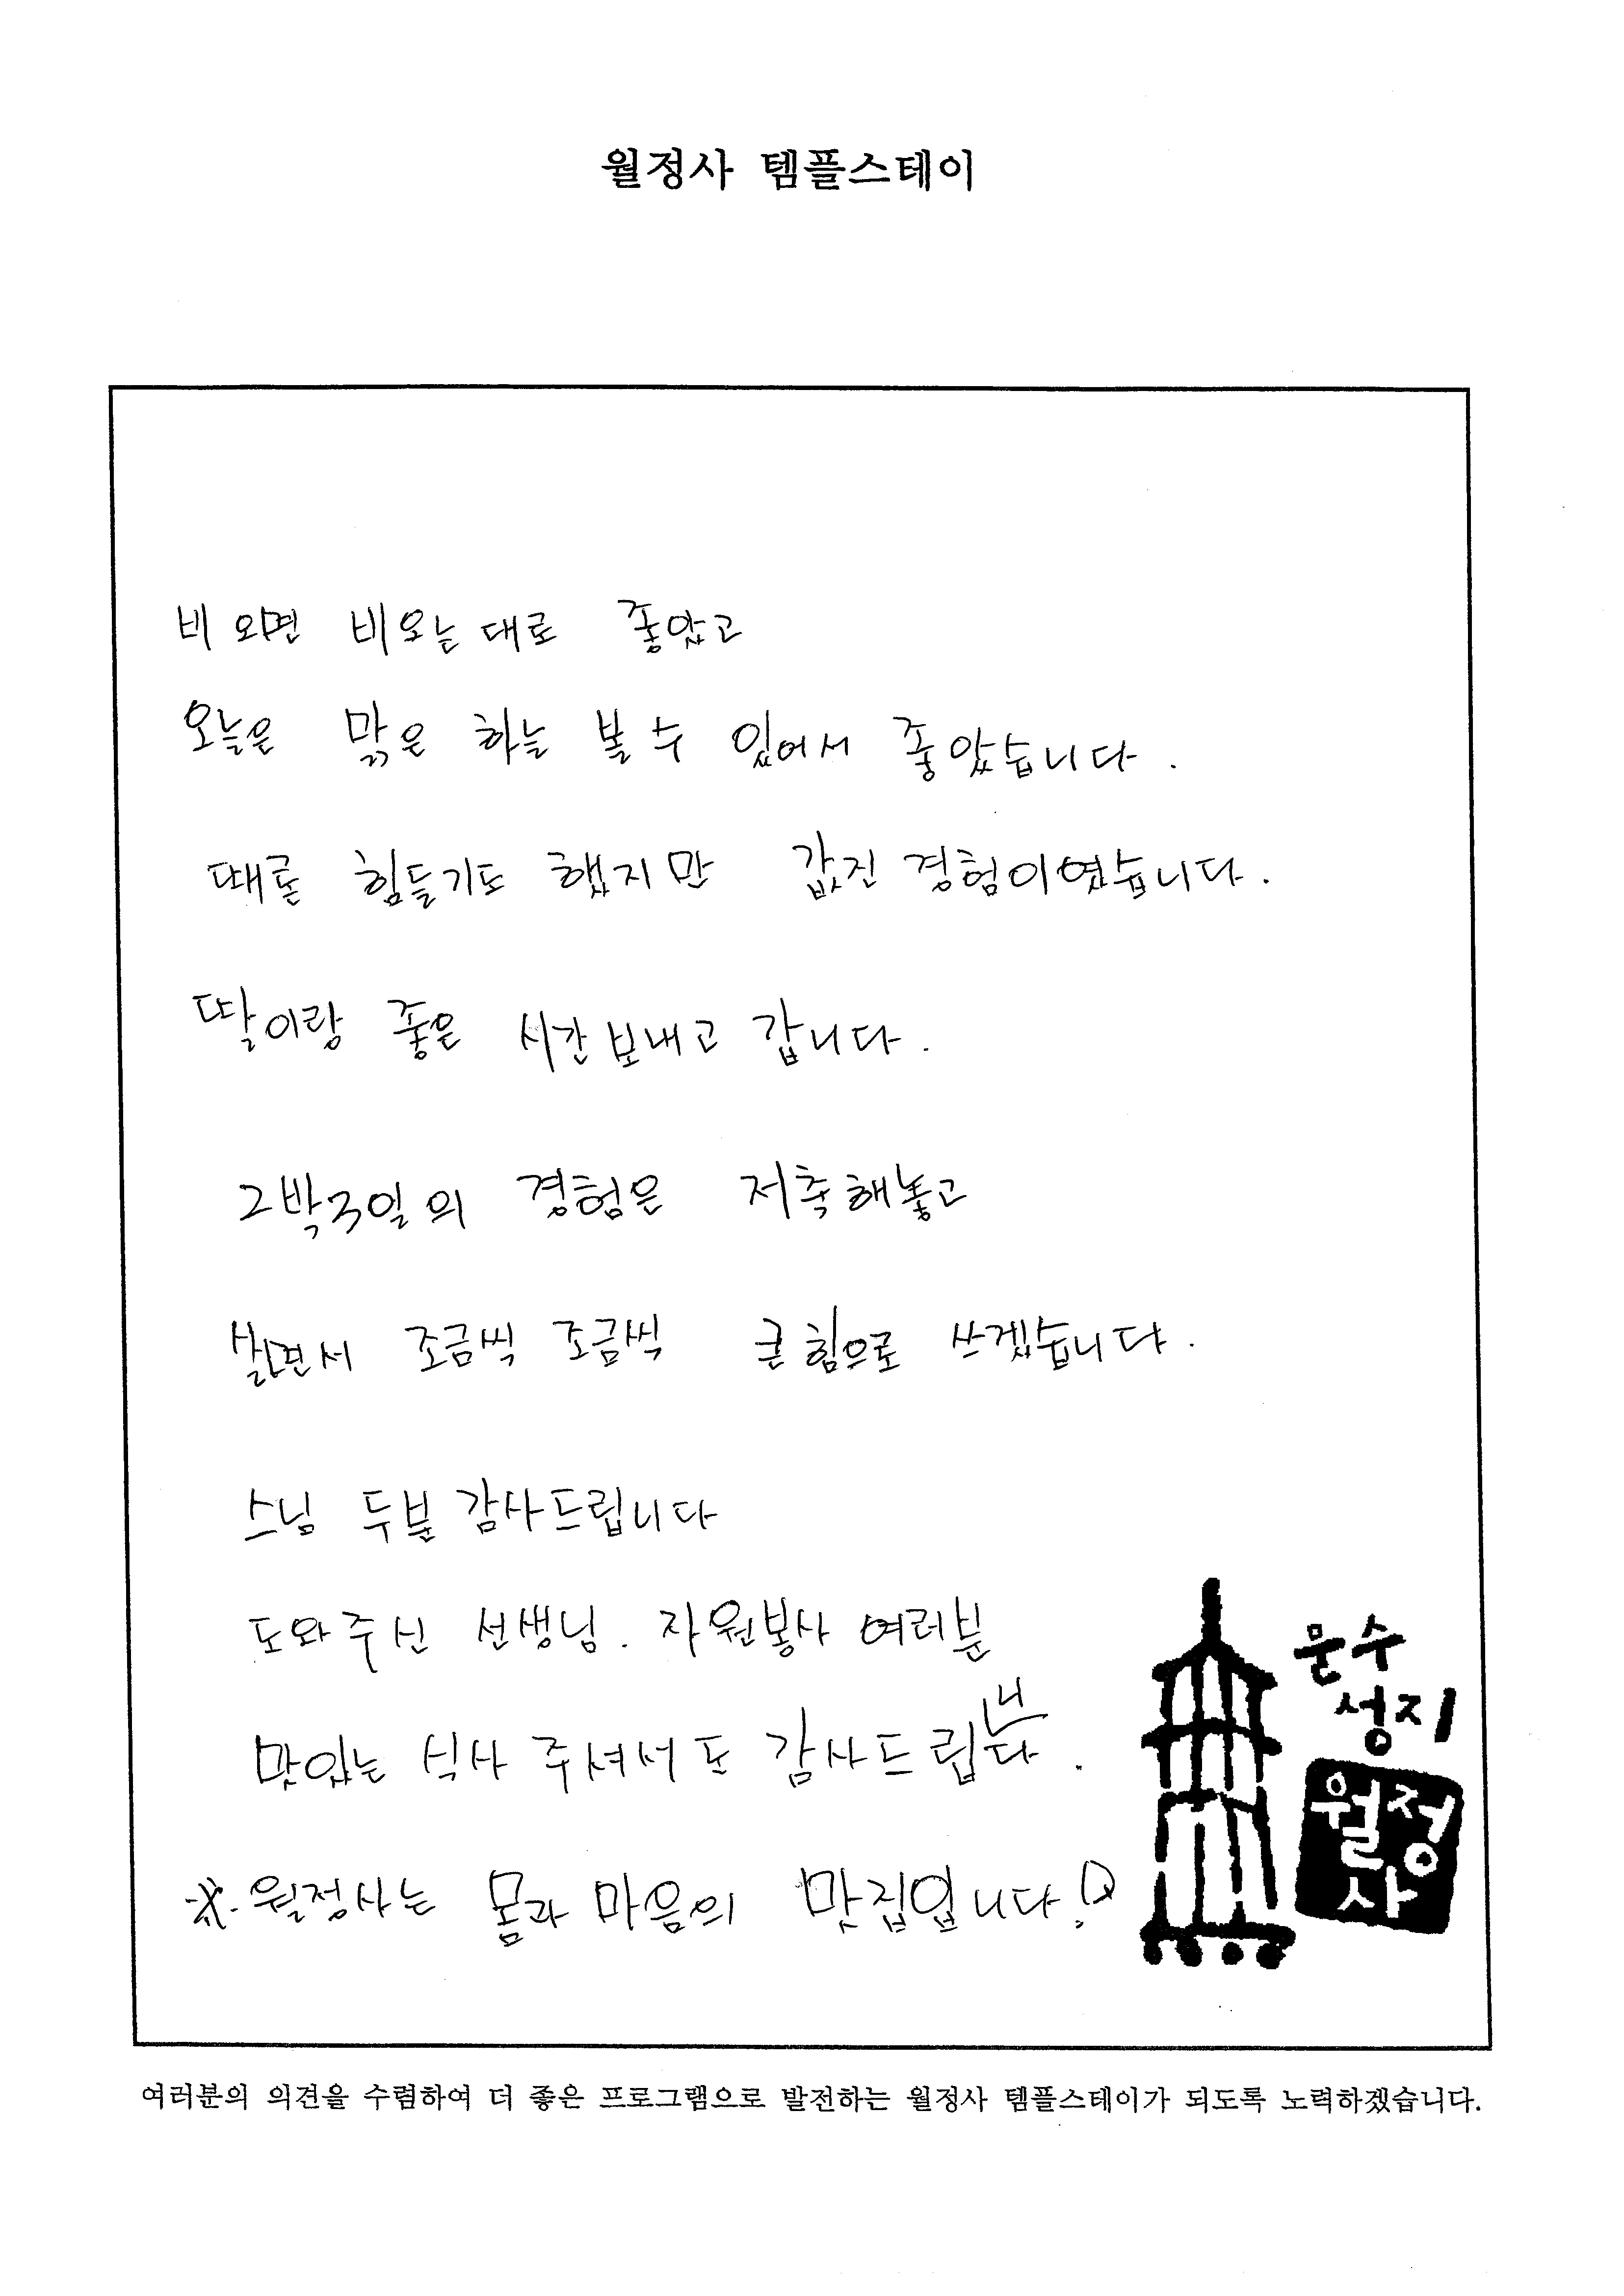 월정사 템플스테이
비 오면 비오는대로 좋았고
오늘은 맑은 하늘 볼 수 있어서 좋았습니다.
때론 힘들기도 했지만 값진 경험이였습니다.
딸이랑 좋은 시간보내고 갑니다.
2박3일의 경험은 저축해놓고
살면서 조금씩 조금씩 큰힘으로 쓰겠습니다.
스님 두분 감사드립니다
도와주신 선생님. 자원봉사 여러분
맛있는 식사 주셔서도 감사드립니다.
※.월정사는 몸과 마음의 맛집입니다!
문수
성지
월정
사
여러분의 의견을 수렴하여 더 좋은 프로그램으로 발전하는 월정사 템플스테이가 되도록 노력하겠습니다.